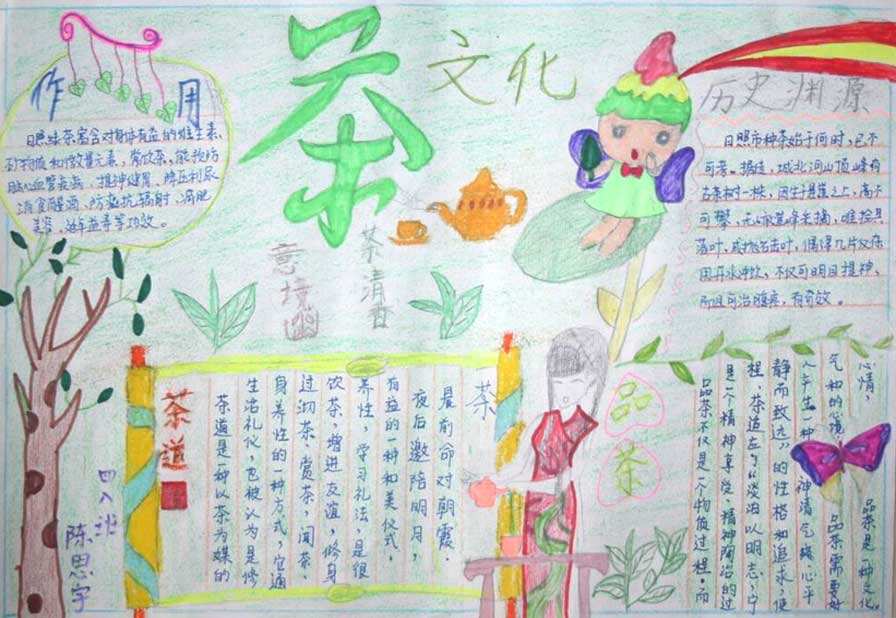 茶文化
作用
日照绿茶富含对身体有益的维生素、
矿物质和微量元素,常饮茶,能预防
脑心血管疾病,提神健胃、降压利尿
消食醒酒,防癌抗辐射、减肥
美容、延年益寿等功效。
历史渊源
日照市种茶始于何时,已不
可考。据传,城北河山顶峰有
古茶树一株,因生于悬崖之上,高不
可攀,无从登峰采摘,唯拾其
落叶,或抛石击叶,偶得几片
开水冲饮,不仅可明目提神,
而且可治腹疾,有奇效。
意境幽
茶清香
茶道
茶道是一种以茶为媒的
生活礼仪,也被认为是修
身养性的一种方式,它通
过沏茶、赏茶、闻茶、
饮茶,增进友谊,修身
养性,学习礼法,是很
有益的一种和美仪式。
夜后邀陪明月,
晨前命对朝霞。
茶
品茶
品茶不仅是一个物质过程。而
是一个精神享受,精神陶冶的过
程,茶道在乎“淡泊以明志,宁
静而致远”的性格和追求,使
人产生一种神清气爽、心平
气和的心境。品茶需要好
心情,品茶是一种文化。
四八班
陈思宇